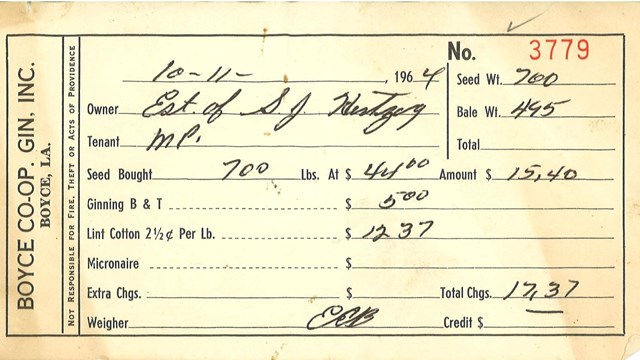 BOYCE CO-OP. GIN, INC.
BOYCE, LA.
NOT RESPONSIBLE FOR FIRE, THEFT OR ACTS OF PROVIDENCE
No. 3779
10-11-, 1964
Seed Wt. 700
Owner Est. of S J Hertzog
Bale Wt. 495
Tenant MP.
Total
Seed Bought 700 Lbs. At $ 44 00 Amount $ 15,40
Ginning B & T $ 5 00
Lint Cotton 2½¢ Per Lb. $ 12 37
Micronaire $
Extra Chgs. $ Total Chgs. 17,37
Weigher ECB Credit $